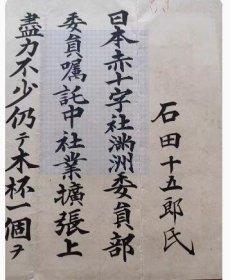 石田十五郎氏
日本赤十字社満洲委員部
委員嘱託中社業擴張上
盡力不少仍テ木杯一個ヲ